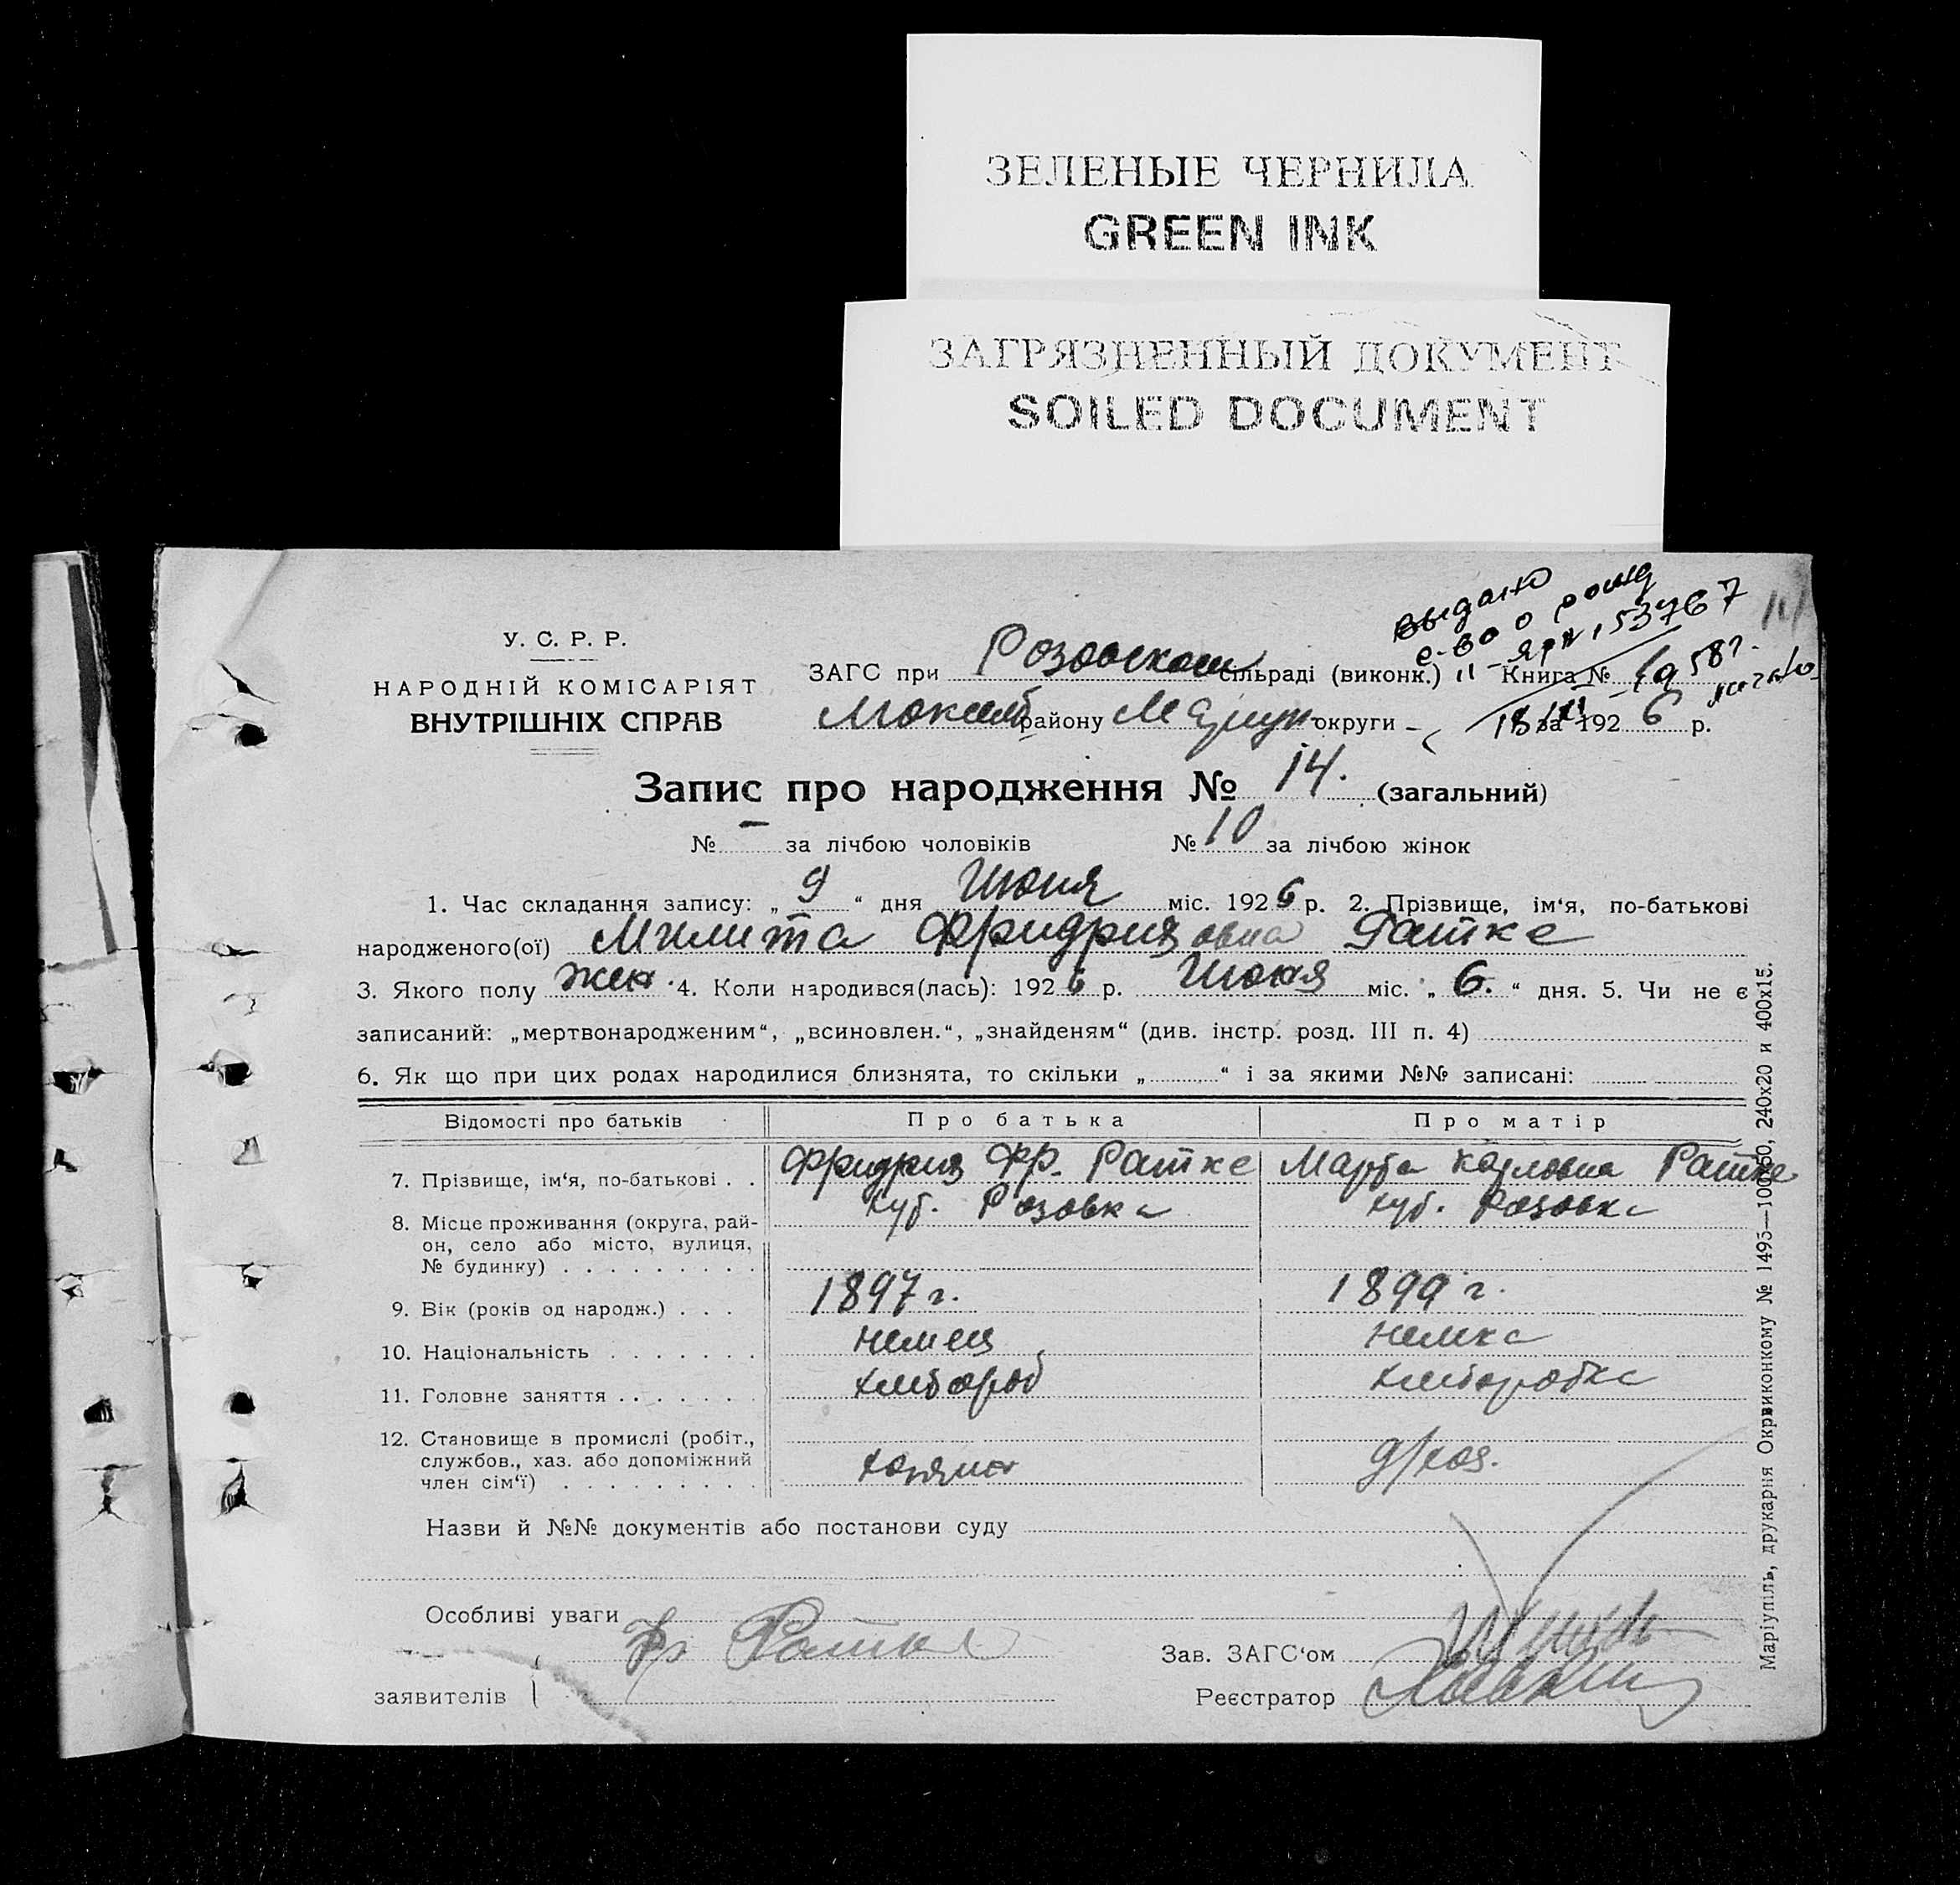 ЗЕЛЕНЫЕ ЧЕРНИЛА
GREEN INK
ЗАГРЯЗНЕННЫЙ ДОКУМЕНТ
SOILED DOCUMENT
выдано
с-во о рожд
ЯРN 153767
У. С. Р. Р.
НАРОДНІЙ КОМІСАРІЯТ
ВНУТРІШНІХ СПРАВ
ЗАГС при Розовском сільраді (виконк.) Книга №
району округи за 1926 р.
Запис про народження № 14. (загальний)
№ — за лічбою чоловіків № 10 за лічбою жінок
1. Час складання запису: „ 9 “ дня Июня міс. 1926 р. 2. Прізвище, ім‘я, по-батькові
народженого(ої) Милита Фридриховна Ратке
3. Якого полу жен. 4. Коли народився(лась): 1926 р. Июня міс. „ 6. “ дня. 5. Чи не є
записаний: „мертвонародженим“, „всиновлен.“, „знайденям“ (див. інстр. розд. III п. 4)
6. Як що при цих родах народилися близнята, то скільки „ “ і за якими №№ записані:
Відомості про батьків Про батька Про матір
7. Прізвище, ім‘я, по-батькові . . Фридрих Фр. Ратке Марта Карловна Ратке
8. Місце проживання (округа, рай-
он, село або місто, вулиця,
№ будинку) . . . . . . . . . Розовка Розовка
9. Вік (років од народж.) . . . 1897 г. 1899 г.
10. Національність . . . . . . . немец немка
11. Головне заняття . . . . . . . хлебороб хлеборобка
12. Становище в промислі (робіт.,
службов., хаз. або допоміжний
член сім‘ї) . . . . . . . . . хозяин д/хоз.
Назви й №№ документів або постанови суду
Особливі уваги
Фр Ратке
заявителів
Зав. ЗАГС‘ом
Реєстратор
Маріупіль, друкарня Окрвиконкому № 1495—100х50, 240х20 и 400х15.